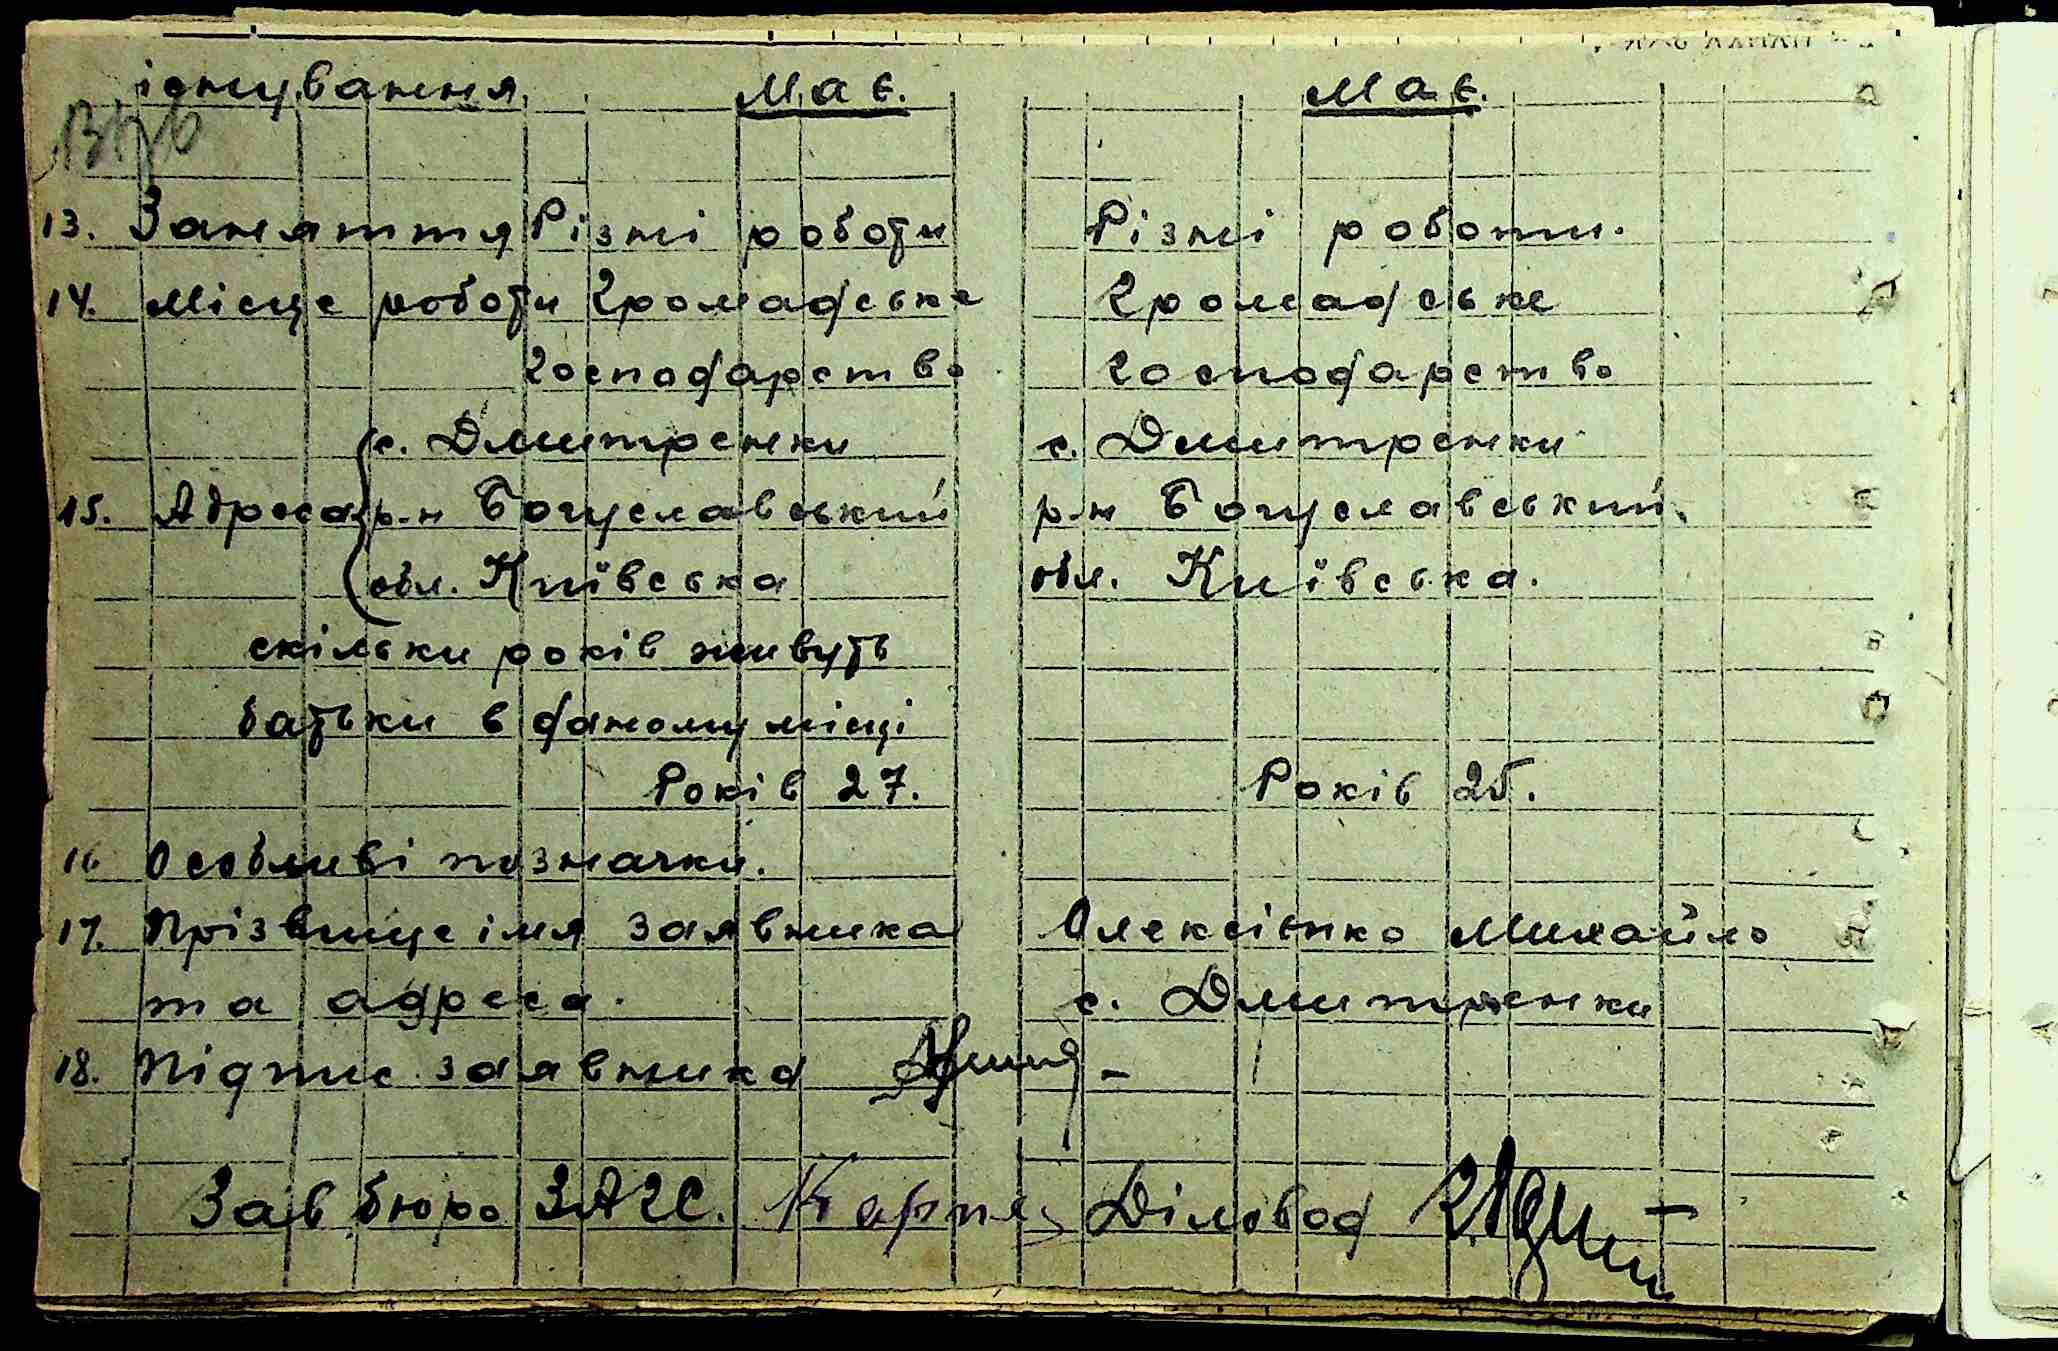 існування має. має.
13. Заняття Різні роботи Різні роботи.
14. Місце роботи Громадське Громадське
господарство господарство
с. Дмитренки с. Дмитренки
15. Адреса р-н Богуславський р-н Богуславський.
обл. Київська обл. Київська.
скільки років живуть
батьки в даному місці
Років 27. Років 25.
16 Особливі позначки.
17. Прізвище імя заявника Олексієнко Михайло
та адреса. с. Дмитренки
18. Підпис заявника
Зав бюро ЗАГС. Діловод